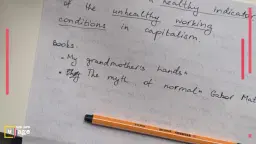 healthy indicator
of the unhealthy working
conditions in capitalism.
Books:
- My grandmother's hands -
The myth of normal - Gabor Mat